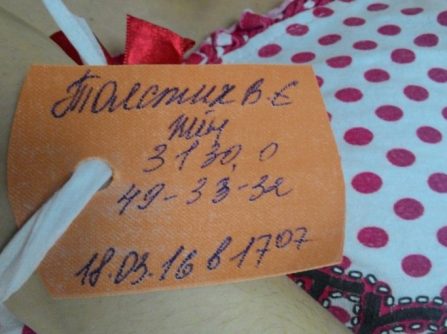 Толстих В. Є
жін
3130,0
49-33-32
18.03.16 в 17 07